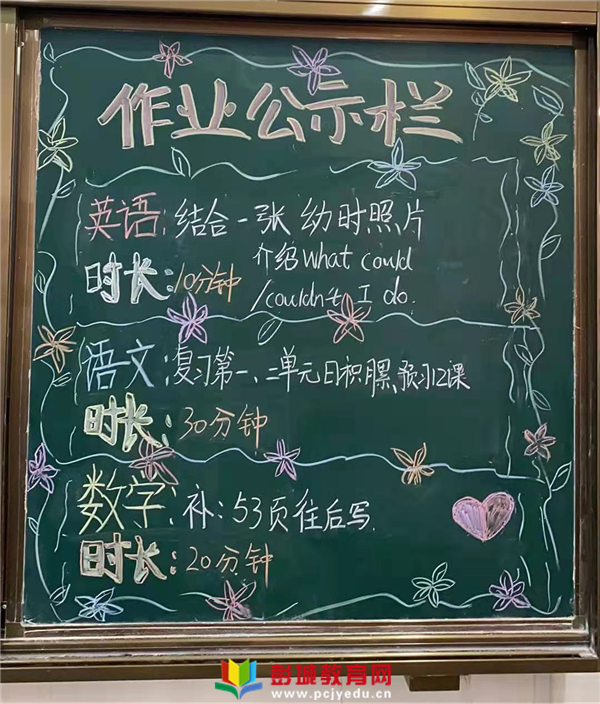 作业公示栏
英语:结合一张幼时照片
介绍What could
时长:10分钟
/couldn't I do.
语文:复习第一、二单元日积月累,预习12课
时长:30分钟
数学:补:53页往后写
时长:20分钟
彭城教育网
www.pcjyedu.cn